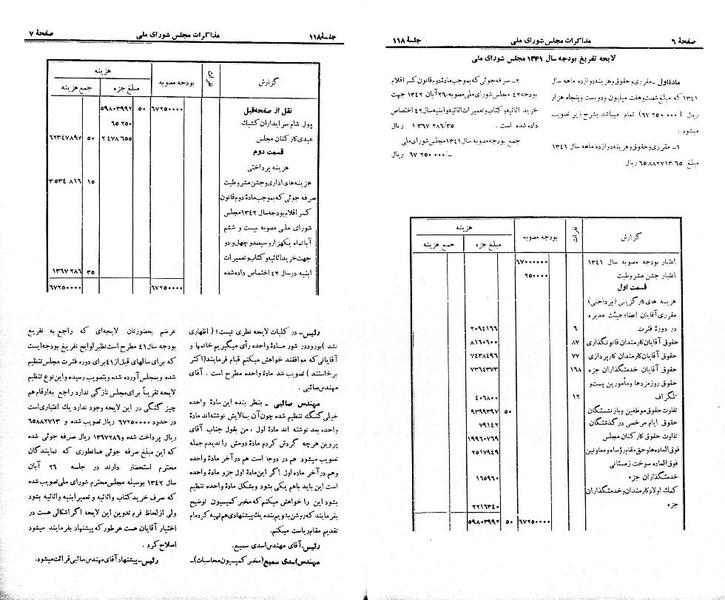 صفحهٔ ۶
مذاکرات مجلس شورای ملی
جلسهٔ ۱۱۸
لایحه تفریغ بودجه سال ۱۳۴۱ مجلس شورای ملی
مادهٔ اول - مقرری و حقوق و هزینه دوازده ماهه سال
۱۳۴۱ که مبلغ شصت و هفت میلیون و دویست و پنجاه هزار
(۶۷ ۲۵۰ ۰۰۰) تمام میباشد بشرح زیر تصویب
میشود:
۱- مقرری و حقوق و هزینه دوازده ماهه سال ۱۳۴۱
مبلغ ۶۵۸۸۲۷۱۳/۶۵ ریال
۲- صرفه‌جوئی که بموجب مادهٔ دو قانون کسر اقلام
بودجه ۴۲ مجلس شورای ملی مصوبه ۲۶ آبان ۱۳۴۲ جهت
خرید اثاثیه و کتاب و تعمیرات اثاثیه و ابنیه سال ۴۲ اختصاص
داده شده است . ۱۳۶۷ ۲۸۶/۳۵ ریال
جمع بودجه مصوبه سال ۱۳۴۱ مجلس شورای ملی
۶۷ ۲۵۰ ۰۰۰/- ریال
گزارش
نفرات
بودجه مصوبه
هزینه
مبلغ جزء
جمع هزینه
اعتبار بودجه مصوبه سال ۱۳۴۱ ۶۷۰۰۰۰۰۰
اعتبار جشن مشروطیت ۲۵۰۰۰۰
قسمت اول
هزینه‌های کارگزینی (پرداختی)
مقرری آقایان اعضاء هیئت مدیره
در دورهٔ فترت ۶ ۲۰۹۴۱۶۶
حقوق آقایان کارمندان قانونگذاری ۸۷ ۸۱۶۰۶۰۰
حقوق آقایان کارمندان کارپردازی ۷۷ ۷۴۳۸۴۹۶
حقوق آقایان خدمتگذاران جزء ۱۶۸ ۷۳۶۴۳۷۳
حقوق روزمزدها و مأمورین پست و
تلگراف ۱۲ ۴۰۶۸۰۰
تفاوت حقوق موظفین و بازنشستگان ۹۳۹۹۳۹۷ ۵۰
حقوق ایام مرخصی درگذشتگان ۷۹۱۴۲
تفاوت حقوق کارکنان مجلس ۱۹۹۶۰۷۶۹
فوق‌العاده‌ها و حق مقام رؤساء و معاونین ۲۵۱۷۹۴۹
فوق‌العاده سوخت زمستانی
خدمتگذاران جزء ۱۶۵۹۶۰
کمک اولاد کارمندان و خدمتگذاران
جزء ۲۲۱۶۳۴۰
۶۷۲۵۰۰۰۰ ۵۰ ۵۹۸۰۳۹۹۲
جلسهٔ ۱۱۸
مذاکرات مجلس شورای ملی
صفحهٔ ۷
گزارش
نفرات
بودجه مصوبه
هزینه
مبلغ جزء
جمع هزینه
نقل از صفحه قبل ۶۷۲۵۰۰۰۰ ۵۰ ۵۹۸۰۳۹۹۲
پول شام سرایداران کشیک ۶۵۲۵۰
عیدی کارکنان مجلس ۲۴۷۸۶۵۵ ۵۰ ۶۲۳۴۷۸۹۷
قسمت دوم
هزینه پرداختی
هزینه‌های اداری و جشن مشروطیت ۱۵ ۳۵۳۴۸۱۶
صرفه جوئی که بموجب مادهٔ دو قانون
کسر اقلام بودجه سال ۱۳۴۲ مجلس
شورای ملی مصوبه بیست و ششم
آبانماه یکهزار و سیصد و چهل و دو
جهت خرید اثاثیه و کتاب و تعمیرات
ابنیه در سال ۴۲ اختصاص داده شده ۳۵ ۱۳۶۷۲۸۶
۶۷۲۵۰۰۰۰ ۶۷۲۵۰۰۰۰
رئیس - در کلیات لایحه نظری نیست؟ (اظهاری
نشد) بورود در شور مادهٔ واحده رأی میگیریم خانمها و
آقایان که موافقند خواهش میکنم قیام فرمایند (اکثر
برخاستند) تصویب شد مادهٔ واحده مطرح است . آقای
مهندس صائبی .
مهندس صائبی - بنظر بنده این مادهٔ واحده
خیلی گنگ تنظیم شده چون آن بالایش نوشته‌اند مادهٔ
واحده بعد نوشته‌اند مادهٔ اول . من بقول جناب آقای
پروین هرچه گردش کردم مادهٔ دومش را ندیدم جمله
تصویب میشود هم در دو جا است هم در آخر مادهٔ واحده
وهم در آخر ماده اول اگر این مادهٔ اول جزو مادهٔ واحده
است این باید باهم یکی بشود و بشکل مادهٔ واحده تنظیم
بشود این را خواهش میکنم که مخبر کمیسیون توضیح
بفرمایند که روشن باشیم بنده یک پیشنهادی هم تهیه کرده‌ام
تقدیم مقام ریاست میکنم.
رئیس - آقای مهندس اسدی سمیع.
مهندس اسدی سمیع (مخبر کمیسیون محاسبات)-
عرضم بحضورتان لایحه‌ای که راجع به تفریغ
بودجه سال ۴۱ مطرح است نظیر لوایح تفریغ بودجه‌ایست
که برای سالهای قبل از ۴۱ برای دوره فترت مجلس تنظیم
شده و بمجلس آورده شده و بتصویب رسیده و این نوع تنظیم
لایحه تقریباً برای مجلس تازگی ندارد راجع به ارقام هم
چیز گنگی در این لایحه وجود ندارد یک اعتباری است
در حدود ۶۷۲۵۰۰۰۰ ریال تصویب شده و ۶۵۸۸۲۷۱۳
ریال پرداخت شده و ۱۳۶۷۲۸۶ ریال صرفه جوئی شده
که این مبلغ صرفه جوئی همانطوری که نمایندگان
محترم استحضار دارند در جلسه ۲۶ آبان
سال ۱۳۴۲ بوسیله مجلس محترم شورای ملی تصویب شده
که صرف خرید کتاب و اثاثیه و تعمیر ابنیه و اثاثیه بشود
ولی از لحاظ فرم تدوین این لایحه اگر اشکالی هست در
اختیار آقایان هست هرطور که پیشنهاد بفرمایند میشود
اصلاح کرد .
رئیس - پیشنهاد آقای مهندس صائبی قرائت میشود.